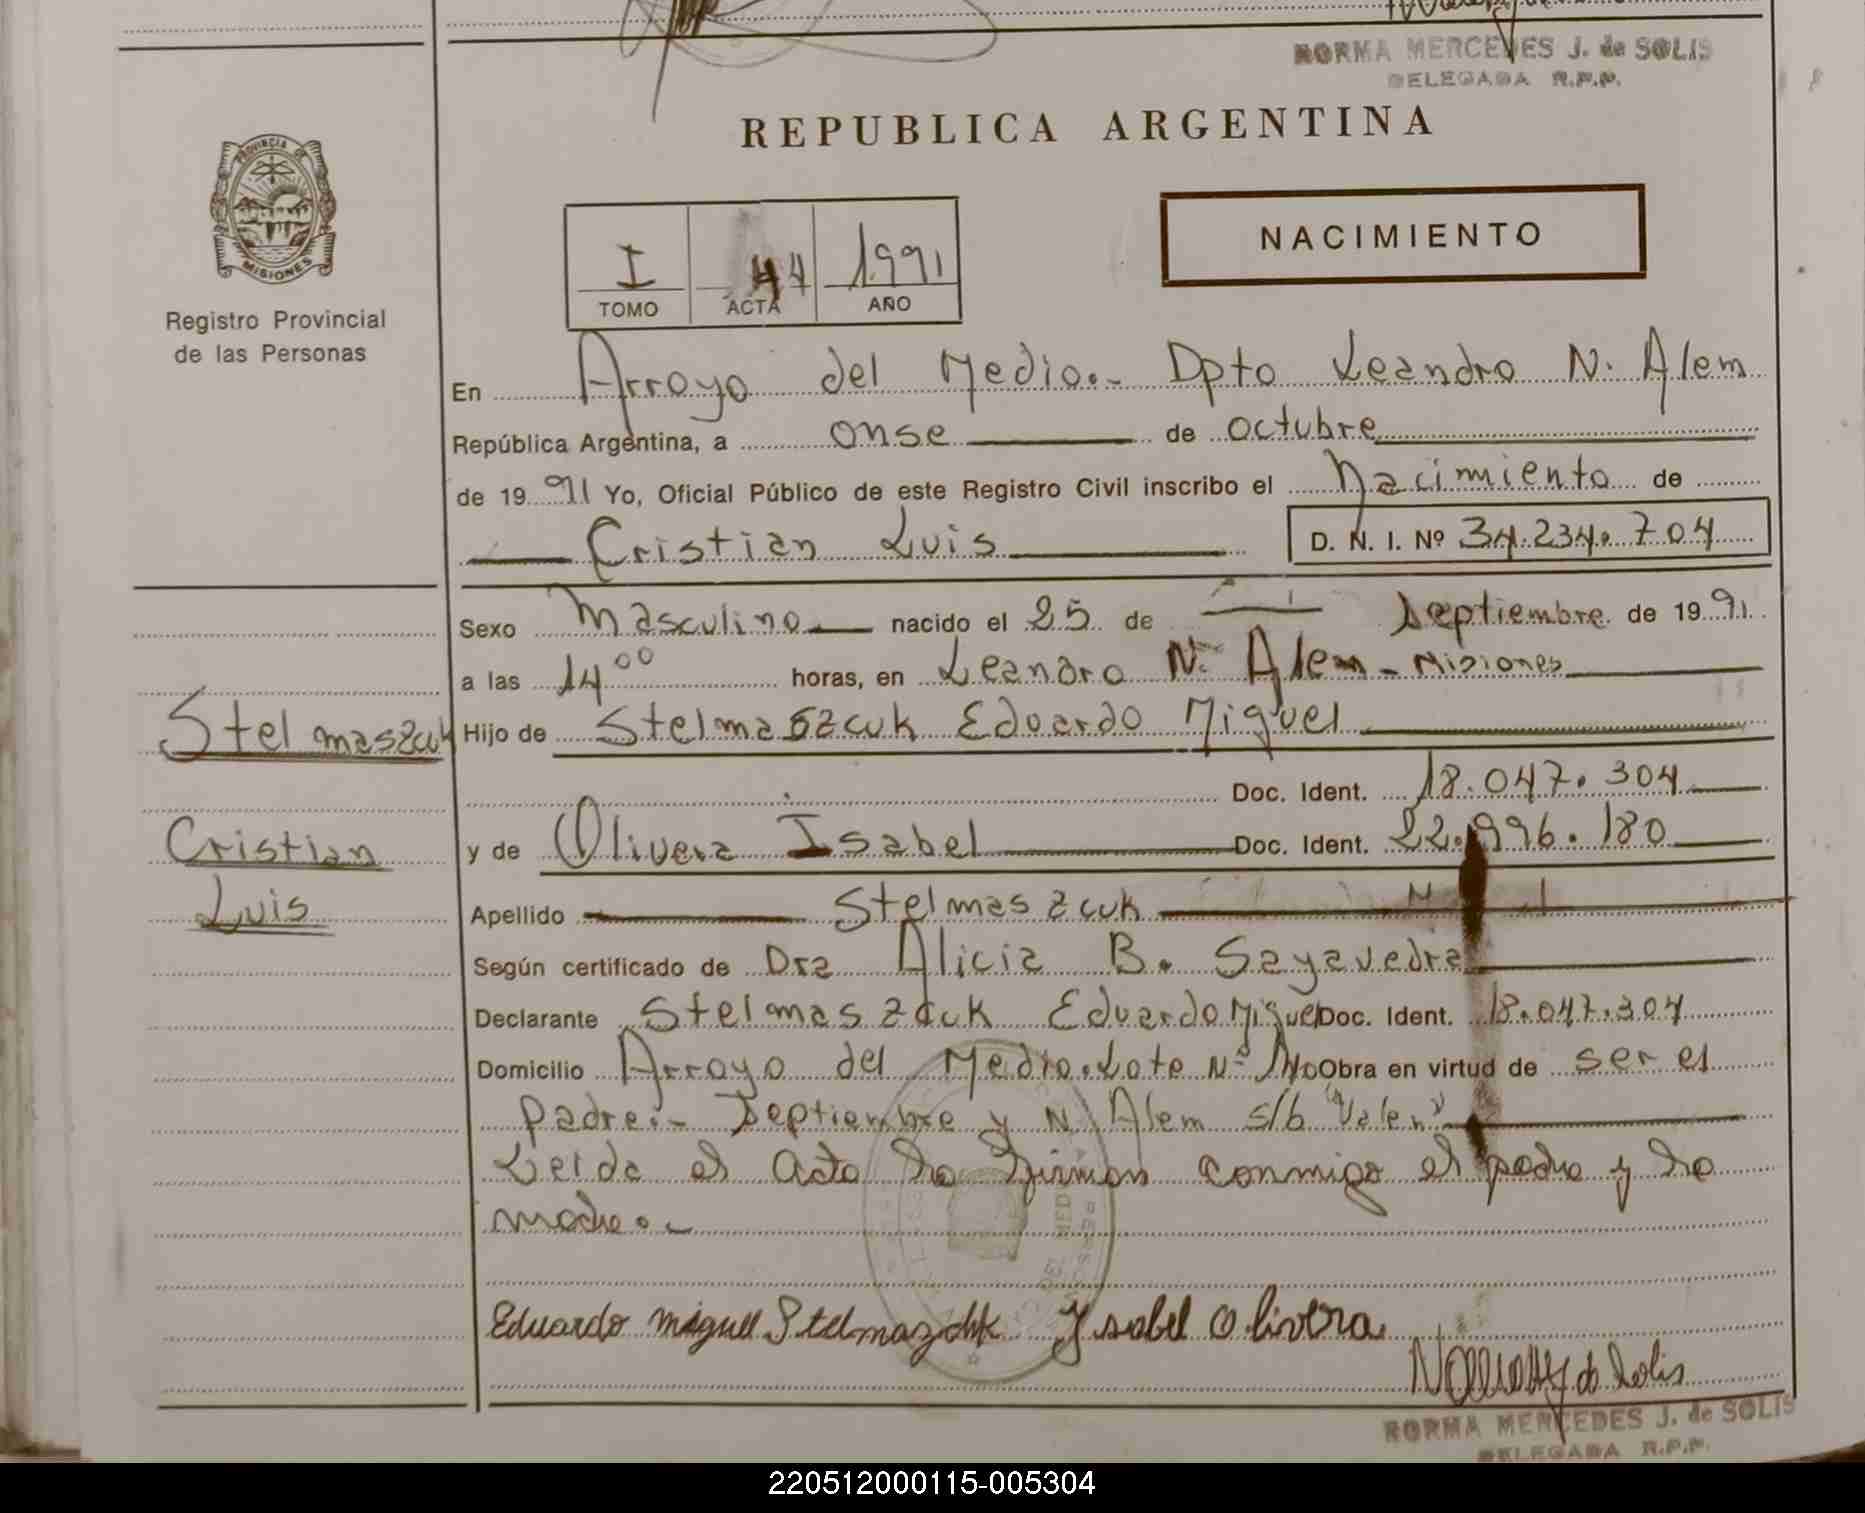 NORMA MERCEDES J. de SOLIS
DELEGADA R.P.P.
REPUBLICA ARGENTINA
PROVINCIA DE
MISIONES
Registro Provincial
de las Personas
I 44 1991
TOMO ACTA AÑO
NACIMIENTO
En Arroyo del Medio.- Dpto Leandro N. Alem
República Argentina, a onse de octubre
de 1991 Yo, Oficial Público de este Registro Civil inscribo el Nacimiento de
Cristian Luis D. N. I. Nº 34.234.704
Sexo Masculino nacido el 25 de Septiembre de 1991.
a las 14 00 horas, en Leandro N. Alem - Misiones
Stelmaszcuk
Hijo de Stelmaszcuk Eduardo Miguel
Doc. Ident. 18.047.304
Cristian
y de Olivera Isabel Doc. Ident. 22.996.180
Luis
Apellido Stelmaszcuk
Según certificado de Dra Alicia B. Sayavedra
Declarante Stelmaszcuk Eduardo Miguel Doc. Ident. 18.047.304
Domicilio Arroyo del Medio. Lote Nº Obra en virtud de ser el
padre.- Septiembre y N. Alem s/b "Valen"
Leida el acta la firman conmigo el padre y la
madre.-
Eduardo Miguel Stelmazchk Ysabel Olivera
de Solis
NORMA MERCEDES J. de SOLIS
DELEGADA R.P.P.
220512000115-005304